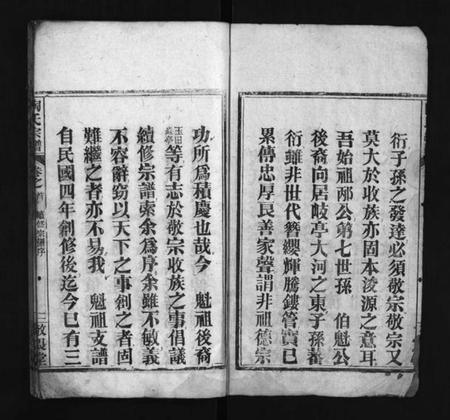 衍子孫之發達必須敬宗敬宗又
莫大於收族亦固本浚源之意耳
吾始祖邴公弟七世孫 伯魁公
後裔向居岐亭大河之東子孫蕃
衍雖非世代簪纓輝騰鏤管實已
累傳忠厚良善家聲謂非祖德宗
功所為積慶也哉今 魁祖後裔
玉田
等有志於敬宗收族之事倡議
續修宗譜索余為序余雖不敏義
不容辭窃以天下之事創之者固
難繼之者亦不易我 魁祖支譜
自民國四年創修後迄今已有三
氏宗譜
卷之首 續修宗譜序
三